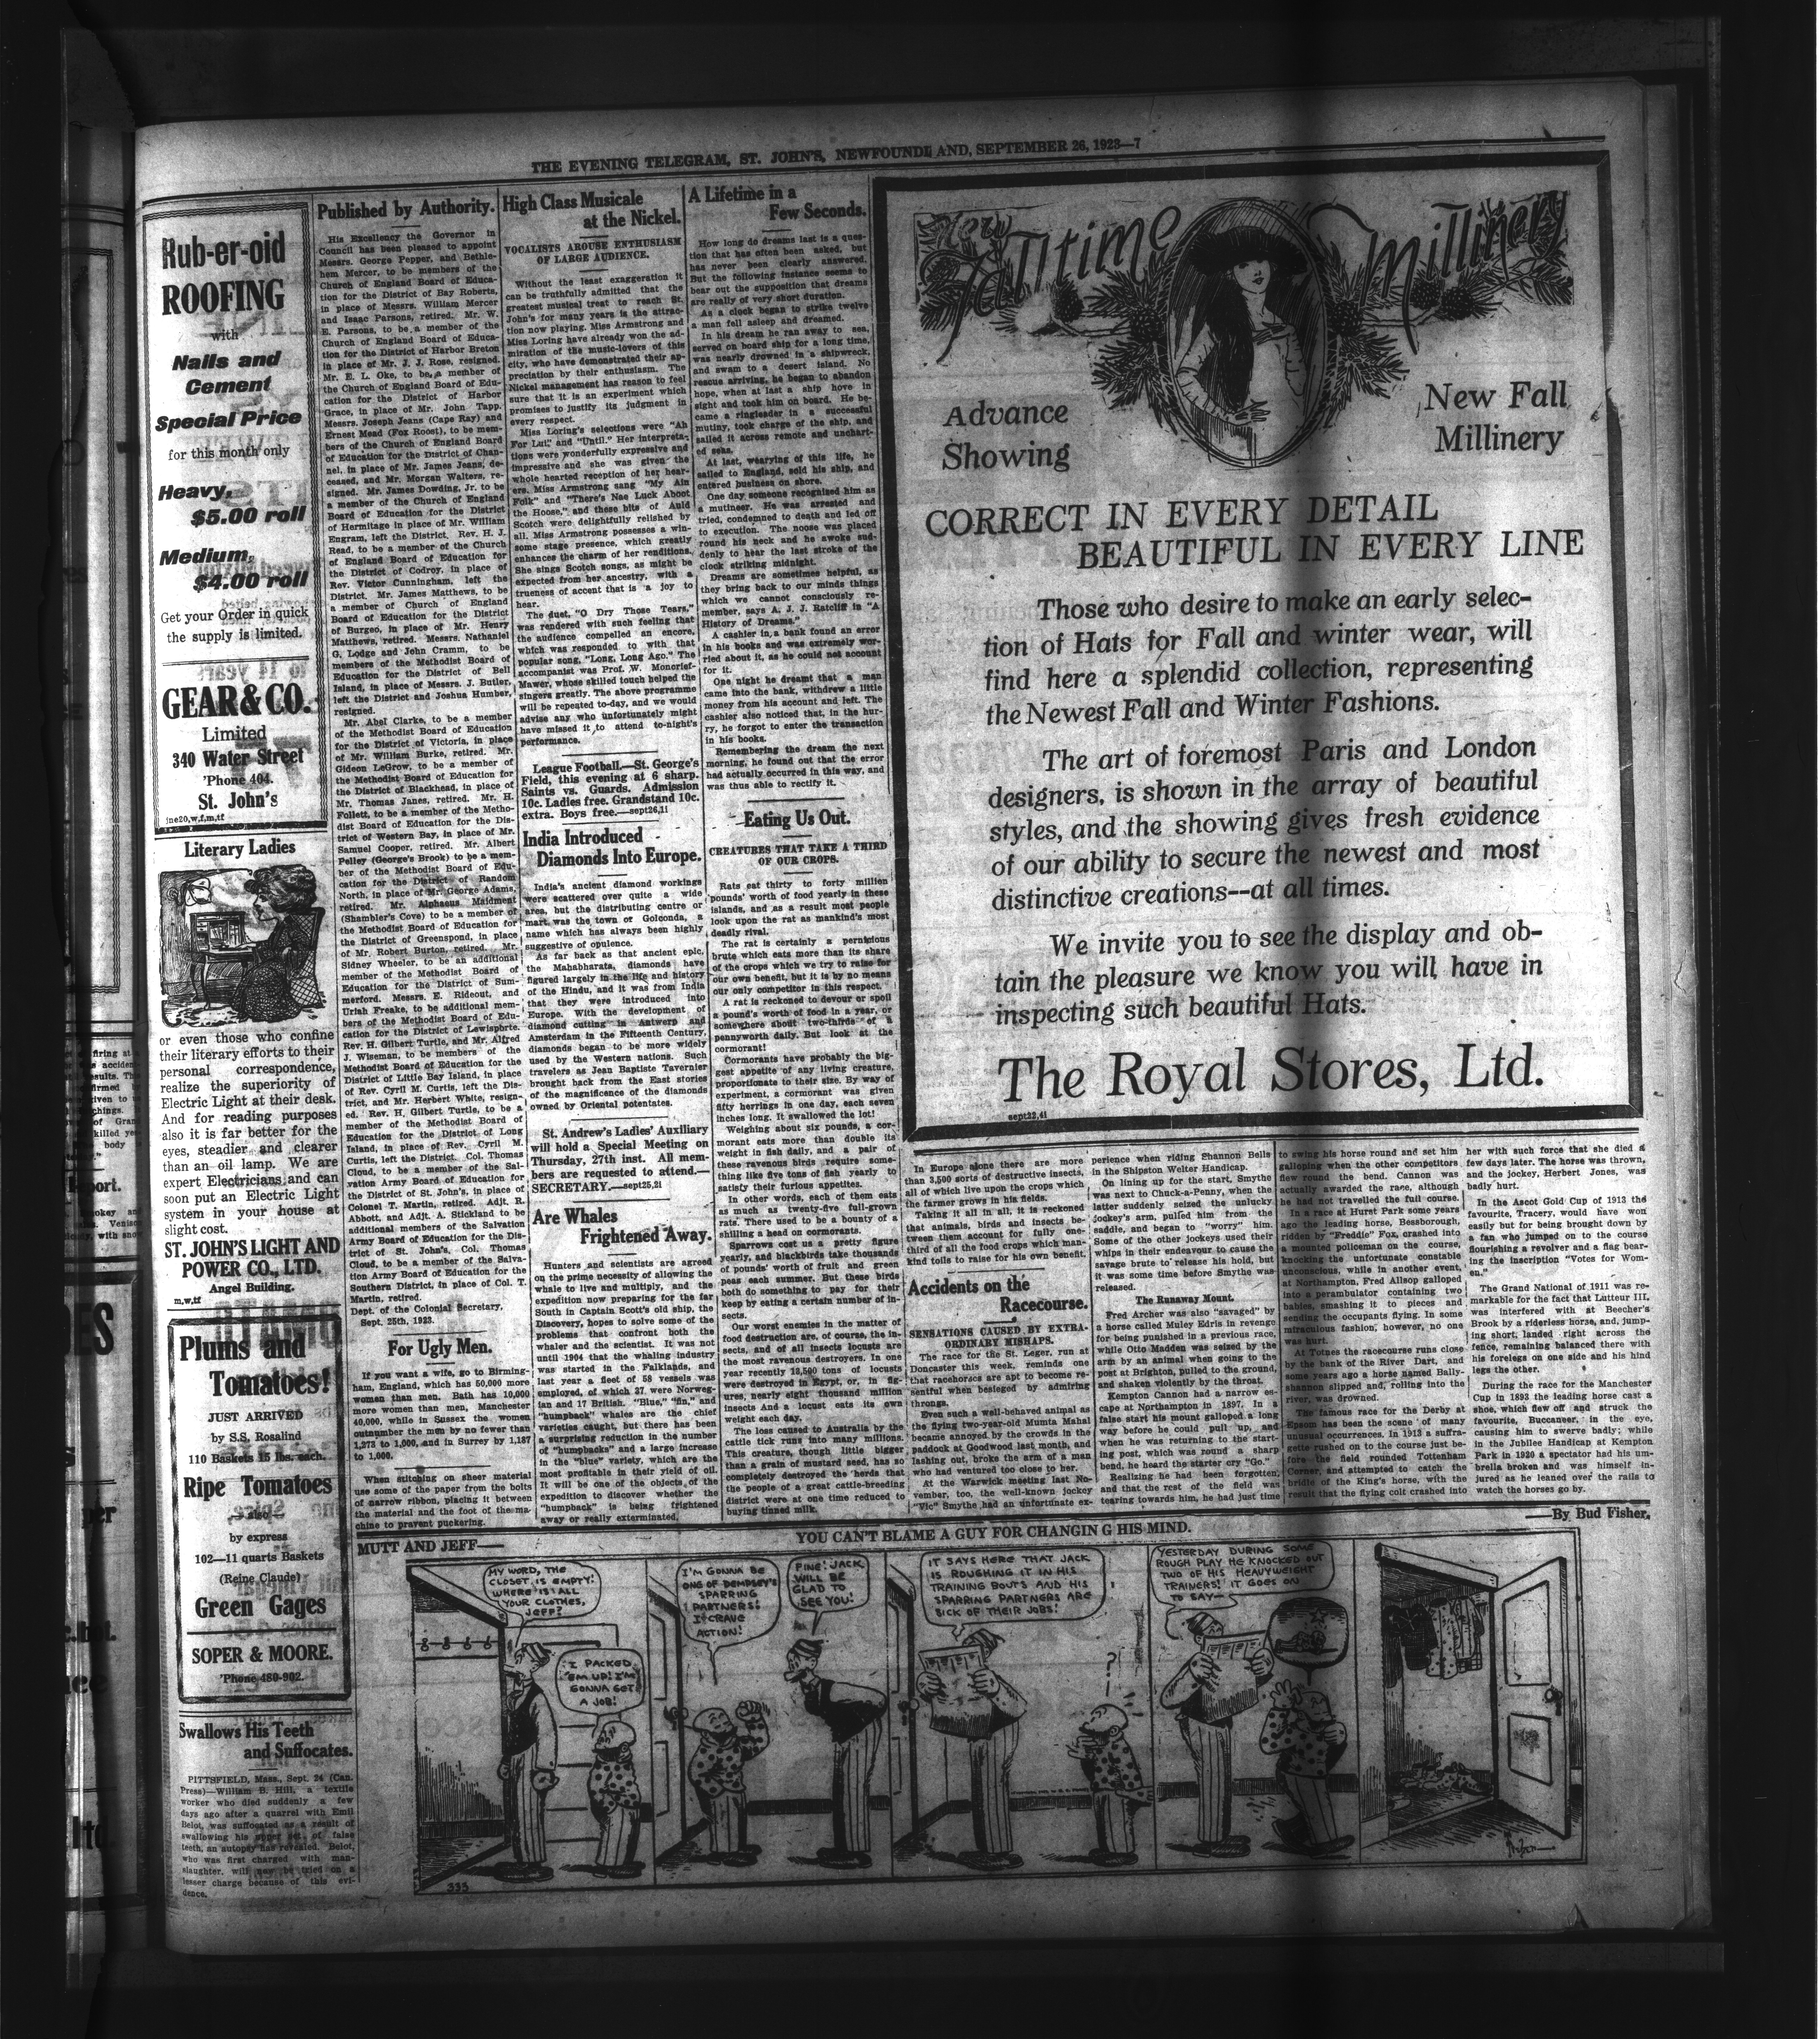 THE EVENING TELEGRAM, ST. JOHN'S, NEWFOUNDLAND, SEPTEMBER 26, 1923—7
Rub-er-oid
ROOFING
with
Nails and
Cement
Special Price
for this month only
Heavy,
$5.00 roll
Medium,
$4.00 roll
Get your Order in quick
the supply is limited.
GEAR & CO.
Limited
340 Water Street
'Phone 404.
St. John's
jne20,w,f,m,tf
Literary Ladies
or even those who confine
their literary efforts to their
personal correspondence,
realize the superiority of
Electric Light at their desk.
And for reading purposes
also it is far better for the
eyes, steadier and clearer
than an oil lamp. We are
expert Electricians and can
soon put an Electric Light
system in your house at
slight cost.
ST. JOHN'S LIGHT AND
POWER CO., LTD.
Angel Building.
m,w,tf
Plums and
Tomatoes!
JUST ARRIVED
by S.S. Rosalind
110 Baskets 15 lbs. each.
Ripe Tomatoes
also
by express
102—11 quarts Baskets
(Reine Claude)
Green Gages
SOPER & MOORE.
'Phone 480-902.
Swallows His Teeth
and Suffocates.
PITTSFIELD, Mass., Sept. 24 (Can.
Press)—William B. Hill, a textile
worker who died suddenly a few
days ago after a quarrel with Emil
Belot, was suffocated as a result of
swallowing his upper set of false
teeth, an autopsy has revealed. Belot,
who was first charged with man-
slaughter, will now be tried on a
lesser charge because of this evi-
dence.
Published by Authority.
His Excellency the Governor in
Council has been pleased to appoint
Messrs. George Pepper, and Bethle-
hem Mercer, to be members of the
Church of England Board of Educa-
tion for the District of Bay Roberts,
in place of Messrs. William Mercer
and Isaac Parsons, retired. Mr. W.
E. Parsons, to be a member of the
Church of England Board of Educa-
tion for the District of Harbor Breton
in place of Mr. J. J. Rose, resigned.
Mr. E. L. Oke, to be a member of
the Church of England Board of Edu-
cation for the District of Harbor
Grace, in place of Mr. John Tapp.
Messrs. Joseph Jeans (Cape Ray) and
Ernest Mead (Fox Roost), to be mem-
bers of the Church of England Board
of Education for the District of Chan-
nel, in place of Mr. James Jeans, de-
ceased, and Mr. Morgan Walters, re-
signed. Mr. James Dowding, Jr. to be
a member of the Church of England
Board of Education for the District
of Hermitage in place of Mr. William
Engram, left the District. Rev. H. J.
Read, to be a member of the Church
of England Board of Education for
the District of Codroy, in place of
Rev. Victor Cunningham, left the
District. Mr. James Matthews, to be
a member of Church of England
Board of Education for the District
of Burgeo, in place of Mr. Henry
Matthews, retired. Messrs. Nathaniel
G. Lodge and John Cramm, to be
members of the Methodist Board of
Education for the District of Bell
Island, in place of Messrs. J. Butler,
left the District and Joshua Humber,
resigned.
Mr. Abel Clarke, to be a member
of the Methodist Board of Education
for the District of Victoria, in place
of Mr. William Burke, retired. Mr.
Gideon LeGrow, to be a member of
the Methodist Board of Education for
the District of Blackhead, in place of
Mr. Thomas Janes, retired. Mr. H.
Follett, to be a member of the Metho-
dist Board of Education for the Dis-
trict of Western Bay, in place of Mr.
Samuel Cooper, retired. Mr. Albert
Pelley (George's Brook) to be a mem-
ber of the Methodist Board of Edu-
cation for the District of Random
North, in place of Mr. George Adams,
retired. Mr. Alphaeus Maidment
(Shambler's Cove) to be a member of
the Methodist Board of Education for
the District of Greenspond, in place
of Mr. Robert Burton, retired. Mr.
Sidney Wheeler, to be an additional
member of the Methodist Board of
Education for the District of Sum-
merford. Messrs. E. Rideout, and
Uriah Freake, to be additional mem-
bers of the Methodist Board of Edu-
cation for the District of Lewisporte.
Rev. H. Gilbert Turtle, and Mr. Alfred
J. Wiseman, to be members of the
Methodist Board of Education for the
District of Little Bay Island, in place
of Rev. Cyril M. Curtis, left the Dis-
trict, and Mr. Herbert White, resign-
ed. Rev. H. Gilbert Turtle, to be a
member of the Methodist Board of
Education for the District of Long
Island, in place of Rev. Cyril M.
Curtis, left the District. Col. Thomas
Cloud, to be a member of the Sal-
vation Army Board of Education for
the District of St. John's, in place of
Colonel T. Martin, retired. Adjt. R.
Abbott, and Adjt. A. Stickland to be
additional members of the Salvation
Army Board of Education for the Dis-
trict of St. John's. Col. Thomas
Cloud, to be a member of the Salva-
tion Army Board of Education for the
Southern District, in place of Col. T.
Martin, retired.
Dept. of the Colonial Secretary,
Sept. 25th, 1923.
For Ugly Men.
If you want a wife, go to Birming-
ham, England, which has 50,000 more
women than men. Bath has 10,000
more women than men, Manchester
40,000, while in Sussex the women
outnumber the men by no fewer than
1,273 to 1,000, and in Surrey by 1,187
to 1,000.
When stitching on sheer material
use some of the paper from the bolts
of narrow ribbon, placing it between
the material and the foot of the ma-
chine to prevent puckering.
High Class Musicale
at the Nickel.
VOCALISTS AROUSE ENTHUSIASM
OF LARGE AUDIENCE.
Without the least exaggeration it
can be truthfully admitted that the
greatest musical treat to reach St.
John's for many years is the attrac-
tion now playing. Miss Armstrong and
Miss Loring have already won the ad-
miration of the music-lovers of this
city, who have demonstrated their ap-
preciation by their enthusiasm. The
Nickel management has reason to feel
sure that it is an experiment which
promises to justify its judgment in
every respect.
Miss Loring's selections were "Ah
For Lui," and "Until." Her interpreta-
tions were wonderfully expressive and
impressive and she was given the
whole hearted reception of her hear-
ers. Miss Armstrong sang "My Ain
Folk" and "There's Nae Luck Aboot
the Hoose," and these bits of Auld
Scotch were delightfully relished by
all. Miss Armstrong possesses a win-
some stage presence, which greatly
enhances the charm of her renditions.
She sings Scotch songs, as might be
expected from her ancestry, with a
trueness of accent that is a joy to
hear.
The duet, "O Dry Those Tears,"
was rendered with such feeling that
the audience compelled an encore,
which was responded to with that
popular song, "Long, Long Ago." The
accompanist was Prof. W. Moncrief-
Mawer, whose skilled touch helped the
singers greatly. The above programme
will be repeated to-day, and we would
advise any who unfortunately might
have missed it to attend to-night's
performance.
League Football.—St. George's
Field, this evening at 6 sharp.
Saints vs. Guards. Admission
10c. Ladies free. Grandstand 10c.
extra. Boys free.—sept26,1i
India Introduced
Diamonds Into Europe.
India's ancient diamond workings
were scattered over quite a wide
area, but the distributing centre or
mart was the town or Golconda, a
name which has always been highly
suggestive of opulence.
As far back as that ancient epic,
the Mahabharata, diamonds have
figured largely in the life and history
of the Hindu, and it was from India
that they were introduced into
Europe. With the development of
diamond cutting in Antwerp and
Amsterdam in the Fifteenth Century,
diamonds began to be more widely
used by the Western nations. Such
travelers as Jean Baptiste Tavernier
brought back from the East stories
of the magnificence of the diamonds
owned by Oriental potentates.
St. Andrew's Ladies' Auxiliary
will hold a Special Meeting on
Thursday, 27th inst. All mem-
bers are requested to attend.—
SECRETARY.—sept25,2i
Are Whales
Frightened Away.
Hunters and scientists are agreed
on the prime necessity of allowing the
whale to live and multiply, and the
expedition now preparing for the far
South in Captain Scott's old ship, the
Discovery, hopes to solve some of the
problems that confront both the
whaler and the scientist. It was not
until 1904 that the whaling industry
was started in the Falklands, and
last year a fleet of 58 vessels was
employed, of which 37 were Norweg-
ian and 17 British. "Blue," "fin," and
"humpback" whales are the chief
varieties caught, but there has been
a surprising reduction in the number
of "humpbacks" and a large increase
in the "blue" variety, which are the
most profitable in their yield of oil.
It will be one of the objects of the
expedition to discover whether the
"humpback" is being frightened
away or really exterminated.
A Lifetime in a
Few Seconds.
How long do dreams last is a ques-
tion that has often been asked, but
has never been clearly answered.
But the following instance seems to
bear out the supposition that dreams
are really of very short duration.
As a clock began to strike twelve
a man fell asleep and dreamed.
In his dream he ran away to sea,
served on board ship for a long time,
was nearly drowned in a shipwreck,
and swam to a desert island. No
rescue arriving, he began to abandon
hope, when at last a ship hove in
sight and took him on board. He be-
came a ringleader in a successful
mutiny, took charge of the ship, and
sailed it across remote and unchart-
ed seas.
At last, wearying of this life, he
sailed to England, sold his ship, and
entered business on shore.
One day someone recognised him as
a mutineer. He was arrested and
tried, condemned to death and led off
to execution. The noose was placed
round his neck and he awoke sud-
denly to hear the last stroke of the
clock striking midnight.
Dreams are sometimes helpful, as
they bring back to our minds things
which we cannot consciously re-
member, says A. J. J. Ratcliff in "A
History of Dreams."
A cashier in a bank found an error
in his books and was extremely wor-
ried about it, as he could not account
for it.
One night he dreamt that a man
came into the bank, withdrew a little
money from his account and left. The
cashier also noticed that, in the hur-
ry, he forgot to enter the transaction
in his books.
Remembering the dream the next
morning, he found out that the error
had actually occurred in this way, and
was thus able to rectify it.
Eating Us Out.
CREATURES THAT TAKE A THIRD
OF OUR CROPS.
Rats eat thirty to forty million
pounds' worth of food yearly in these
islands, and as a result most people
look upon the rat as mankind's most
deadly rival.
The rat is certainly a pernicious
brute which eats more than its share
of the crops which we try to raise for
our own benefit, but it is by no means
our only competitor in this respect.
A rat is reckoned to devour or spoil
a pound's worth of food in a year, or
somewhere about two-thirds of a
pennyworth daily. But look at the
cormorant!
Cormorants have probably the big-
gest appetite of any living creature,
proportionate to their size. By way of
experiment, a cormorant was given
fifty herrings in one day, each seven
inches long. It swallowed the lot!
Weighing about six pounds, a cor-
morant eats more than double its
weight in fish daily, and a pair of
these ravenous birds require some-
thing like five tons of fish yearly to
satisfy their furious appetites.
In other words, each of them eats
as much as twenty-five full-grown
rats. There used to be a bounty of a
shilling a head on cormorants.
Sparrows cost us a pretty figure
yearly, and blackbirds take thousands
of pounds' worth of fruit and green
peas each summer. But these birds
both do something to pay for their
keep by eating a certain number of in-
sects.
Our worst enemies in the matter of
food destruction are, of course, the in-
sects, and of all insects locusts are
the most ravenous destroyers. In one
year recently 18,500 tons of locusts
were destroyed in Egypt, or, in fig-
ures, nearly eight thousand million
insects And a locust eats its own
weight each day.
The loss caused to Australia by the
cattle tick runs into many millions.
This creature, though little bigger
than a grain of mustard seed, has so
completely destroyed the herds that
the people of a great cattle-breeding
district were at one time reduced to
buying tinned milk.
New
Falltime Millinery
Advance
Showing
New Fall
Millinery
CORRECT IN EVERY DETAIL
BEAUTIFUL IN EVERY LINE
Those who desire to make an early selec-
tion of Hats for Fall and winter wear, will
find here a splendid collection, representing
the Newest Fall and Winter Fashions.
The art of foremost Paris and London
designers, is shown in the array of beautiful
styles, and the showing gives fresh evidence
of our ability to secure the newest and most
distinctive creations--at all times.
We invite you to see the display and ob-
tain the pleasure we know you will have in
inspecting such beautiful Hats.
The Royal Stores, Ltd.
sept22,4i
In Europe alone there are more
than 3,500 sorts of destructive insects,
all of which live upon the crops which
the farmer grows in his fields.
Taking it all in all, it is reckoned
that animals, birds and insects be-
tween them account for fully one-
third of all the food crops which man-
kind toils to raise for his own benefit.
Accidents on the
Racecourse.
SENSATIONS CAUSED BY EXTRA-
ORDINARY MISHAPS.
The race for the St. Leger, run at
Doncaster this week, reminds one
that racehorses are apt to become re-
sentful when besieged by admiring
throngs.
Even such a well-behaved animal as
the flying two-year-old Mumta Mahal
became annoyed by the crowds in the
paddock at Goodwood last month, and
lashing out, broke the arm of a man
who had ventured too close to her.
At the Warwick meeting last No-
vember, too, the well-known jockey
"Vic" Smythe had an unfortunate ex-
perience when riding Shannon Bells
in the Shipston Welter Handicap.
On lining up for the start, Smythe
was next to Chuck-a-Penny, when the
latter suddenly seized the unlucky
jockey's arm, pulled him from the
saddle, and began to "worry" him.
Some of the other jockeys used their
whips in their endeavour to cause the
savage brute to release his hold, but
it was some time before Smythe was
released.
The Runaway Mount.
Fred Archer was also "savaged" by
a horse called Muley Edris in revenge
for being punished in a previous race,
while Otto Madden was seized by the
arm by an animal when going to the
post at Brighton, pulled to the ground,
and shaken violently by the throat.
Kempton Cannon had a narrow es-
cape at Northampton in 1897. In a
false start his mount galloped a long
way before he could pull up, and
when he was returning to the start-
ing post, which was round a sharp
bend, he heard the starter cry "Go."
Realizing he had been forgotten,
and that the rest of the field was
tearing towards him, he had just time
to swing his horse round and set him
galloping when the other competitors
flew round the bend. Cannon was
actually awarded the race, although
he had not travelled the full course.
In a race at Hurst Park some years
ago the leading horse, Bessborough,
ridden by "Freddie" Fox, crashed into
a mounted policeman on the course,
knocking the unfortunate constable
unconscious, while in another event,
at Northampton, Fred Allsop galloped
into a perambulator containing two
babies, smashing it to pieces and
sending the occupants flying. In some
miraculous fashion, however, no one
was hurt.
At Totnes the racecourse runs close
by the bank of the River Dart, and
some years ago a horse named Bally-
shannon slipped and, rolling into the
river, was drowned.
The famous race for the Derby at
Epsom has been the scene of many
unusual occurrences. In 1913 a suffra-
gette rushed on to the course just be-
fore the field rounded Tottenham
Corner, and attempted to catch the
bridle of the King's horse, with the
result that the flying colt crashed into
her with such force that she died a
few days later. The horse was thrown,
and the jockey, Herbert Jones, was
badly hurt.
In the Ascot Gold Cup of 1913 the
favourite, Tracery, would have won
easily but for being brought down by
a fan who jumped on to the course
flourishing a revolver and a flag bear-
ing the inscription "Votes for Wom-
en."
The Grand National of 1911 was re-
markable for the fact that Lutteur III.
was interfered with at Beecher's
Brook by a riderless horse, and, jump-
ing short, landed right across the
fence, remaining balanced there with
his forelegs on one side and his hind
legs the other.
During the race for the Manchester
Cup in 1893 the leading horse cast a
shoe, which flew off and struck the
favourite, Buccaneer, in the eye,
causing him to swerve badly; while
in the Jubilee Handicap at Kempton
Park in 1920 a spectator had his um-
brella broken and was himself in-
jured as he leaned over the rails to
watch the horses go by.
MUTT AND JEFF—
YOU CAN'T BLAME A GUY FOR CHANGING HIS MIND.
—By Bud Fisher.
MY WORD, THE
CLOSET IS EMPTY!
WHERE IS ALL
YOUR CLOTHES,
JEFF?
I PACKED
'EM UP! I'M
GONNA GET
A JOB!
I'M GONNA BE
ONE OF DEMPSEY'S
SPARRING
PARTNERS!
I CRAVE
ACTION!
FINE! JACK
WILL BE
GLAD TO
SEE YOU!
IT SAYS HERE THAT JACK
IS ROUGHING IT IN HIS
TRAINING BOUTS AND HIS
SPARRING PARTNERS ARE
SICK OF THEIR JOBS!
?
YESTERDAY DURING SOME
ROUGH PLAY HE KNOCKED OUT
TWO OF HIS HEAVYWEIGHT
TRAINERS! IT GOES ON
TO SAY—
333